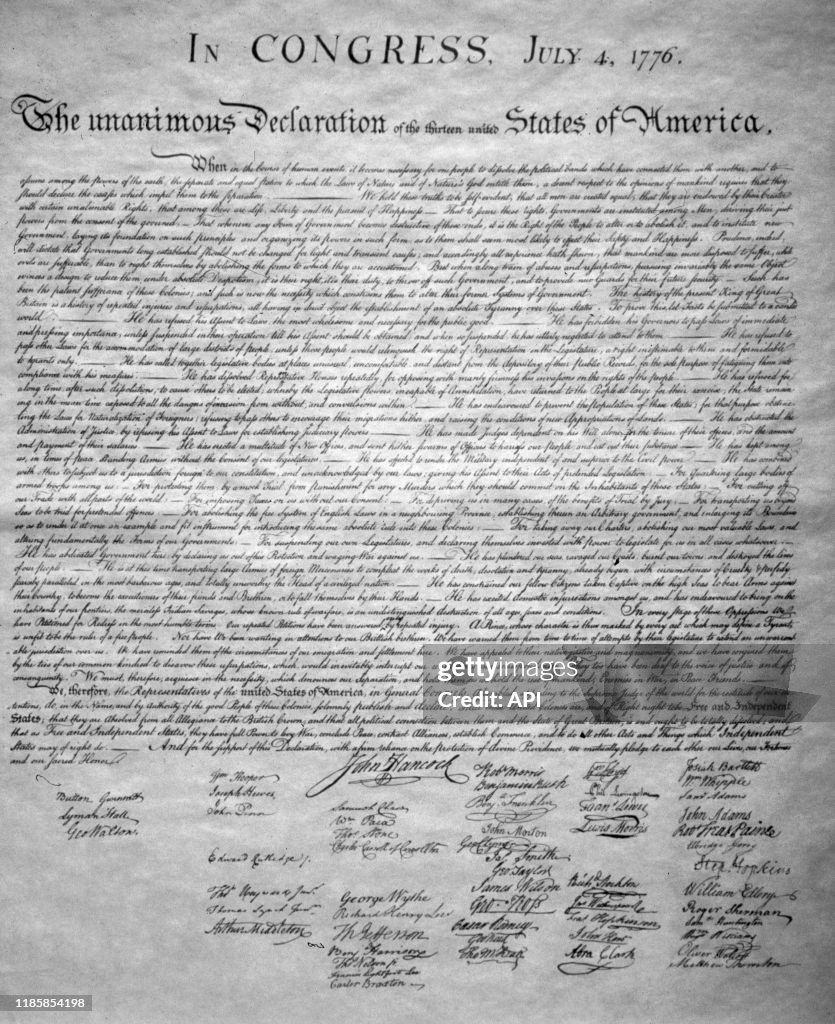 IN CONGRESS, JULY 4, 1776.
The unanimous Declaration of the thirteen united States of America,
When in the Course of human events, it becomes necessary for one people to dissolve the political bands which have connected them with another, and to
assume among the powers of the earth, the separate and equal station to which the Laws of Nature and of Nature's God entitle them, a decent respect to the opinions of mankind requires that they
should declare the causes which impel them to the separation. We hold these truths to be self-evident, that all men are created equal, that they are endowed by their Creator
with certain unalienable Rights, that among these are Life, Liberty and the pursuit of Happiness.— That to secure these rights, Governments are instituted among Men, deriving their just
powers from the consent of the governed,— That whenever any Form of Government becomes destructive of these ends, it is the Right of the People to alter or to abolish it, and to institute new
Government, laying its foundation on such principles and organizing its powers in such form, as to them shall seem most likely to effect their Safety and Happiness. Prudence, indeed,
will dictate that Governments long established should not be changed for light and transient causes; and accordingly all experience hath shewn, that mankind are more disposed to suffer, while
evils are sufferable, than to right themselves by abolishing the forms to which they are accustomed. But when a long train of abuses and usurpations, pursuing invariably the same Object
evinces a design to reduce them under absolute Despotism, it is their right, it is their duty, to throw off such Government, and to provide new Guards for their future security.— Such has
been the patient sufferance of these Colonies; and such is now the necessity which constrains them to alter their former Systems of Government. The history of the present King of Great
Britain is a history of repeated injuries and usurpations, all having in direct object the establishment of an absolute Tyranny over these States. To prove this, let Facts be submitted to a candid
world. He has refused his Assent to Laws, the most wholesome and necessary for the public good. He has forbidden his Governors to pass Laws of immediate
and pressing importance, unless suspended in their operation till his Assent should be obtained; and when so suspended, he has utterly neglected to attend to them. He has refused to
pass other Laws for the accommodation of large districts of people, unless those people would relinquish the right of Representation in the Legislature, a right inestimable to them and formidable
to tyrants only. He has called together legislative bodies at places unusual, uncomfortable, and distant from the depository of their Public Records, for the sole purpose of fatiguing them into
compliance with his measures. He has dissolved Representative Houses repeatedly, for opposing with manly firmness his invasions on the rights of the people. He has refused for
a long time, after such dissolutions, to cause others to be elected; whereby the Legislative powers, incapable of Annihilation, have returned to the People at large for their exercise; the State remain-
ing in the mean time exposed to all the dangers of invasion from without, and convulsions within. He has endeavoured to prevent the population of these States; for that purpose obstruc-
ting the Laws for Naturalization of Foreigners; refusing to pass others to encourage their migrations hither, and raising the conditions of new Appropriations of Lands. He has obstructed the
Administration of Justice, by refusing his Assent to Laws for establishing Judiciary powers. He has made Judges dependent on his Will alone, for the tenure of their offices, and the amount
and payment of their salaries. He has erected a multitude of New Offices, and sent hither swarms of Officers to harrass our People, and eat out their substance. He has kept among
us, in times of peace, Standing Armies without the Consent of our legislatures. He has affected to render the Military independent of and superior to the Civil power. He has combined
with others to subject us to a jurisdiction foreign to our constitution, and unacknowledged by our laws; giving his Assent to their Acts of pretended Legislation: For Quartering large bodies of
armed troops among us: For protecting them, by a mock Trial, from punishment for any Murders which they should commit on the Inhabitants of these States: For cutting off
our Trade with all parts of the world: For imposing Taxes on us without our Consent: For depriving us in many cases, of the benefits of Trial by Jury: For transporting us beyond
Seas to be tried for pretended offences: For abolishing the free System of English Laws in a neighbouring Province, establishing therein an Arbitrary government, and enlarging its Boundaries
so as to render it at once an example and fit instrument for introducing the same absolute rule into these Colonies: For taking away our Charters, abolishing our most valuable Laws, and
altering fundamentally the Forms of our Governments: For suspending our own Legislatures, and declaring themselves invested with power to legislate for us in all cases whatsoever.
He has abdicated Government here, by declaring us out of his Protection and waging War against us. He has plundered our seas, ravaged our Coasts, burnt our towns, and destroyed the lives
of our people. He is at this time transporting large Armies of foreign Mercenaries to compleat the works of death, desolation and tyranny, already begun with circumstances of Cruelty & perfidy
scarcely paralleled in the most barbarous ages, and totally unworthy the Head of a civilized nation. He has constrained our fellow Citizens taken Captive on the high Seas to bear Arms against
their Country, to become the executioners of their friends and Brethren, or to fall themselves by their Hands. He has excited domestic insurrections amongst us, and has endeavoured to bring on the
inhabitants of our frontiers, the merciless Indian Savages, whose known rule of warfare, is an undistinguished destruction of all ages, sexes and conditions. In every stage of these Oppressions We
have Petitioned for Redress in the most humble terms: Our repeated Petitions have been answered only by repeated injury. A Prince, whose character is thus marked by every act which may define a Tyrant,
is unfit to be the ruler of a free people. Nor have We been wanting in attentions to our Brittish brethren. We have warned them from time to time of attempts by their legislature to extend an unwarrant-
able jurisdiction over us. We have reminded them of the circumstances of our emigration and settlement here. We have appealed to their native justice and magnanimity, and we have conjured them
by the ties of our common kindred to disavow these usurpations, which would inevitably interrupt our have been deaf to the voice of justice and of
consanguinity. We must, therefore, acquiesce in the necessity, which denounces our Separation, and hold Enemies in War, in Peace Friends.
We, therefore, the Representatives of the united States of America, in General Congress, to the Supreme Judge of the world for the rectitude of our in-
tentions, do, in the Name, and by Authority of the good People of these Colonies, solemnly publish and declare, of Right ought to be Free and Independent
States; that they are Absolved from all Allegiance to the British Crown, and that all political connection between them and the State of Great Britain, is and ought to be totally dissolved; and
that as Free and Independent States, they have full Power to levy War, conclude Peace, contract Alliances, establish Commerce, and to do all other Acts and Things which Independent
States may of right do. And for the support of this Declaration, with a firm reliance on the protection of divine Providence, we mutually pledge to each other our Lives, our Fortunes
and our sacred Honor.
Button Gwinnett
Lyman Hall
Geo Walton.
Wm Hooper
Joseph Hewes
John Penn
Edward Rutledge
Thos Heyward Junr.
Thomas Lynch Junr.
Arthur Middleton
John Hancock
Samuel Chase
Wm Paca
Thos Stone
Charles Carroll of Carrollton
George Wythe
Richard Henry Lee
Th Jefferson
Benj Harrison
Thos Nelson jr
Francis Lightfoot Lee
Carter Braxton
Robt Morris
Benjamin Rush
Benj Franklin
John Morton
Geo Clymer
Jas Smith
Geo Taylor
James Wilson
Geo Ross
Caesar Rodney
Geo Read
Tho M:Kean
Wm Floyd
Phil Livingston
Frans Lewis
Lewis Morris
Richd Stockton
Jno Witherspoon
Fras Hopkinson
John Hart
Abra Clark
Josiah Bartlett
Wm Whipple
Saml Adams
John Adams
Robt Treat Paine
Elbridge Gerry
Step. Hopkins
William Ellery
Roger Sherman
Saml Huntington
Wm Williams
Oliver Wolcott
Matthew Thornton
gettyimages
Credit: API
1185854198